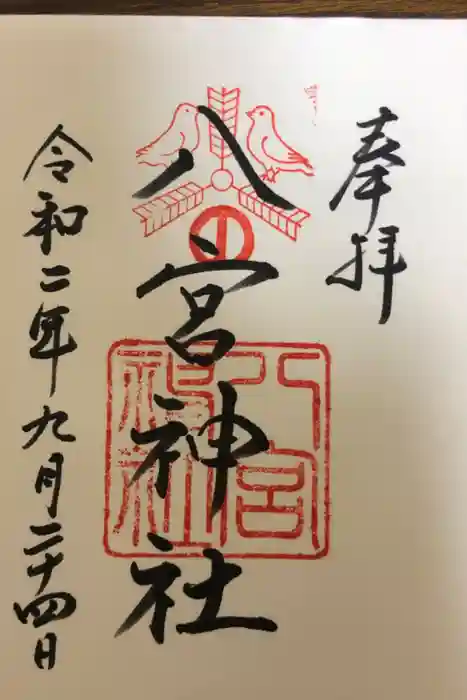 奉拝
八宮神社
八宮
神社
令和二年九月二十四日